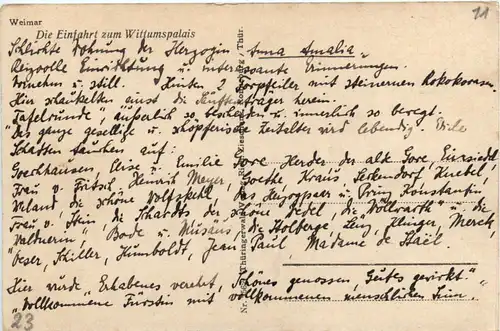 Weimar
Die Einfahrt zum Wittumspalais
11
Schlichte Wohnung der Herzogin "Anna Amalia".
Reizvolle Einrichtung u. interessante Erinnerungen.
Vornehm u. still. Hinten 2 Torpfeiler mit steinernen Rokokovasen.
Hier schaukelten einst die Sänftenträger herein.
Tafelrunde, äußerlich so bescheiden u. innerlich so bewegt.
"Das ganze gesellige u. schöpferische Zeitalter wird lebendig. Edle
Schatten tauchen auf:
Goechhausen, Elise u. Emilie Gore, Herder der alte Gore, Einsiedel,
Frau v. Fritsch, Heinrich Meyer, Goethe, Kraus, Seckendorf, Knebel,
Wieland, die schöne Wolfskehl, das Herzogspaar u. Prinz Konstantin
Frau v. Stein, die Schardts, die schöne Wedel, die Wöllwarth u. die
"Waldnerin", Bode u. Musäus, die Kolberge, Lenz, Klinger, Merck,
Oeser, Schiller, Humboldt, Jean Paul, Madame de Staël.
Hier wurde "Erhabenes verehrt, Schönes genossen, Gutes gewirkt."
"Vollkommene Fürstin mit vollkommenen menschlichen Sinn."
23